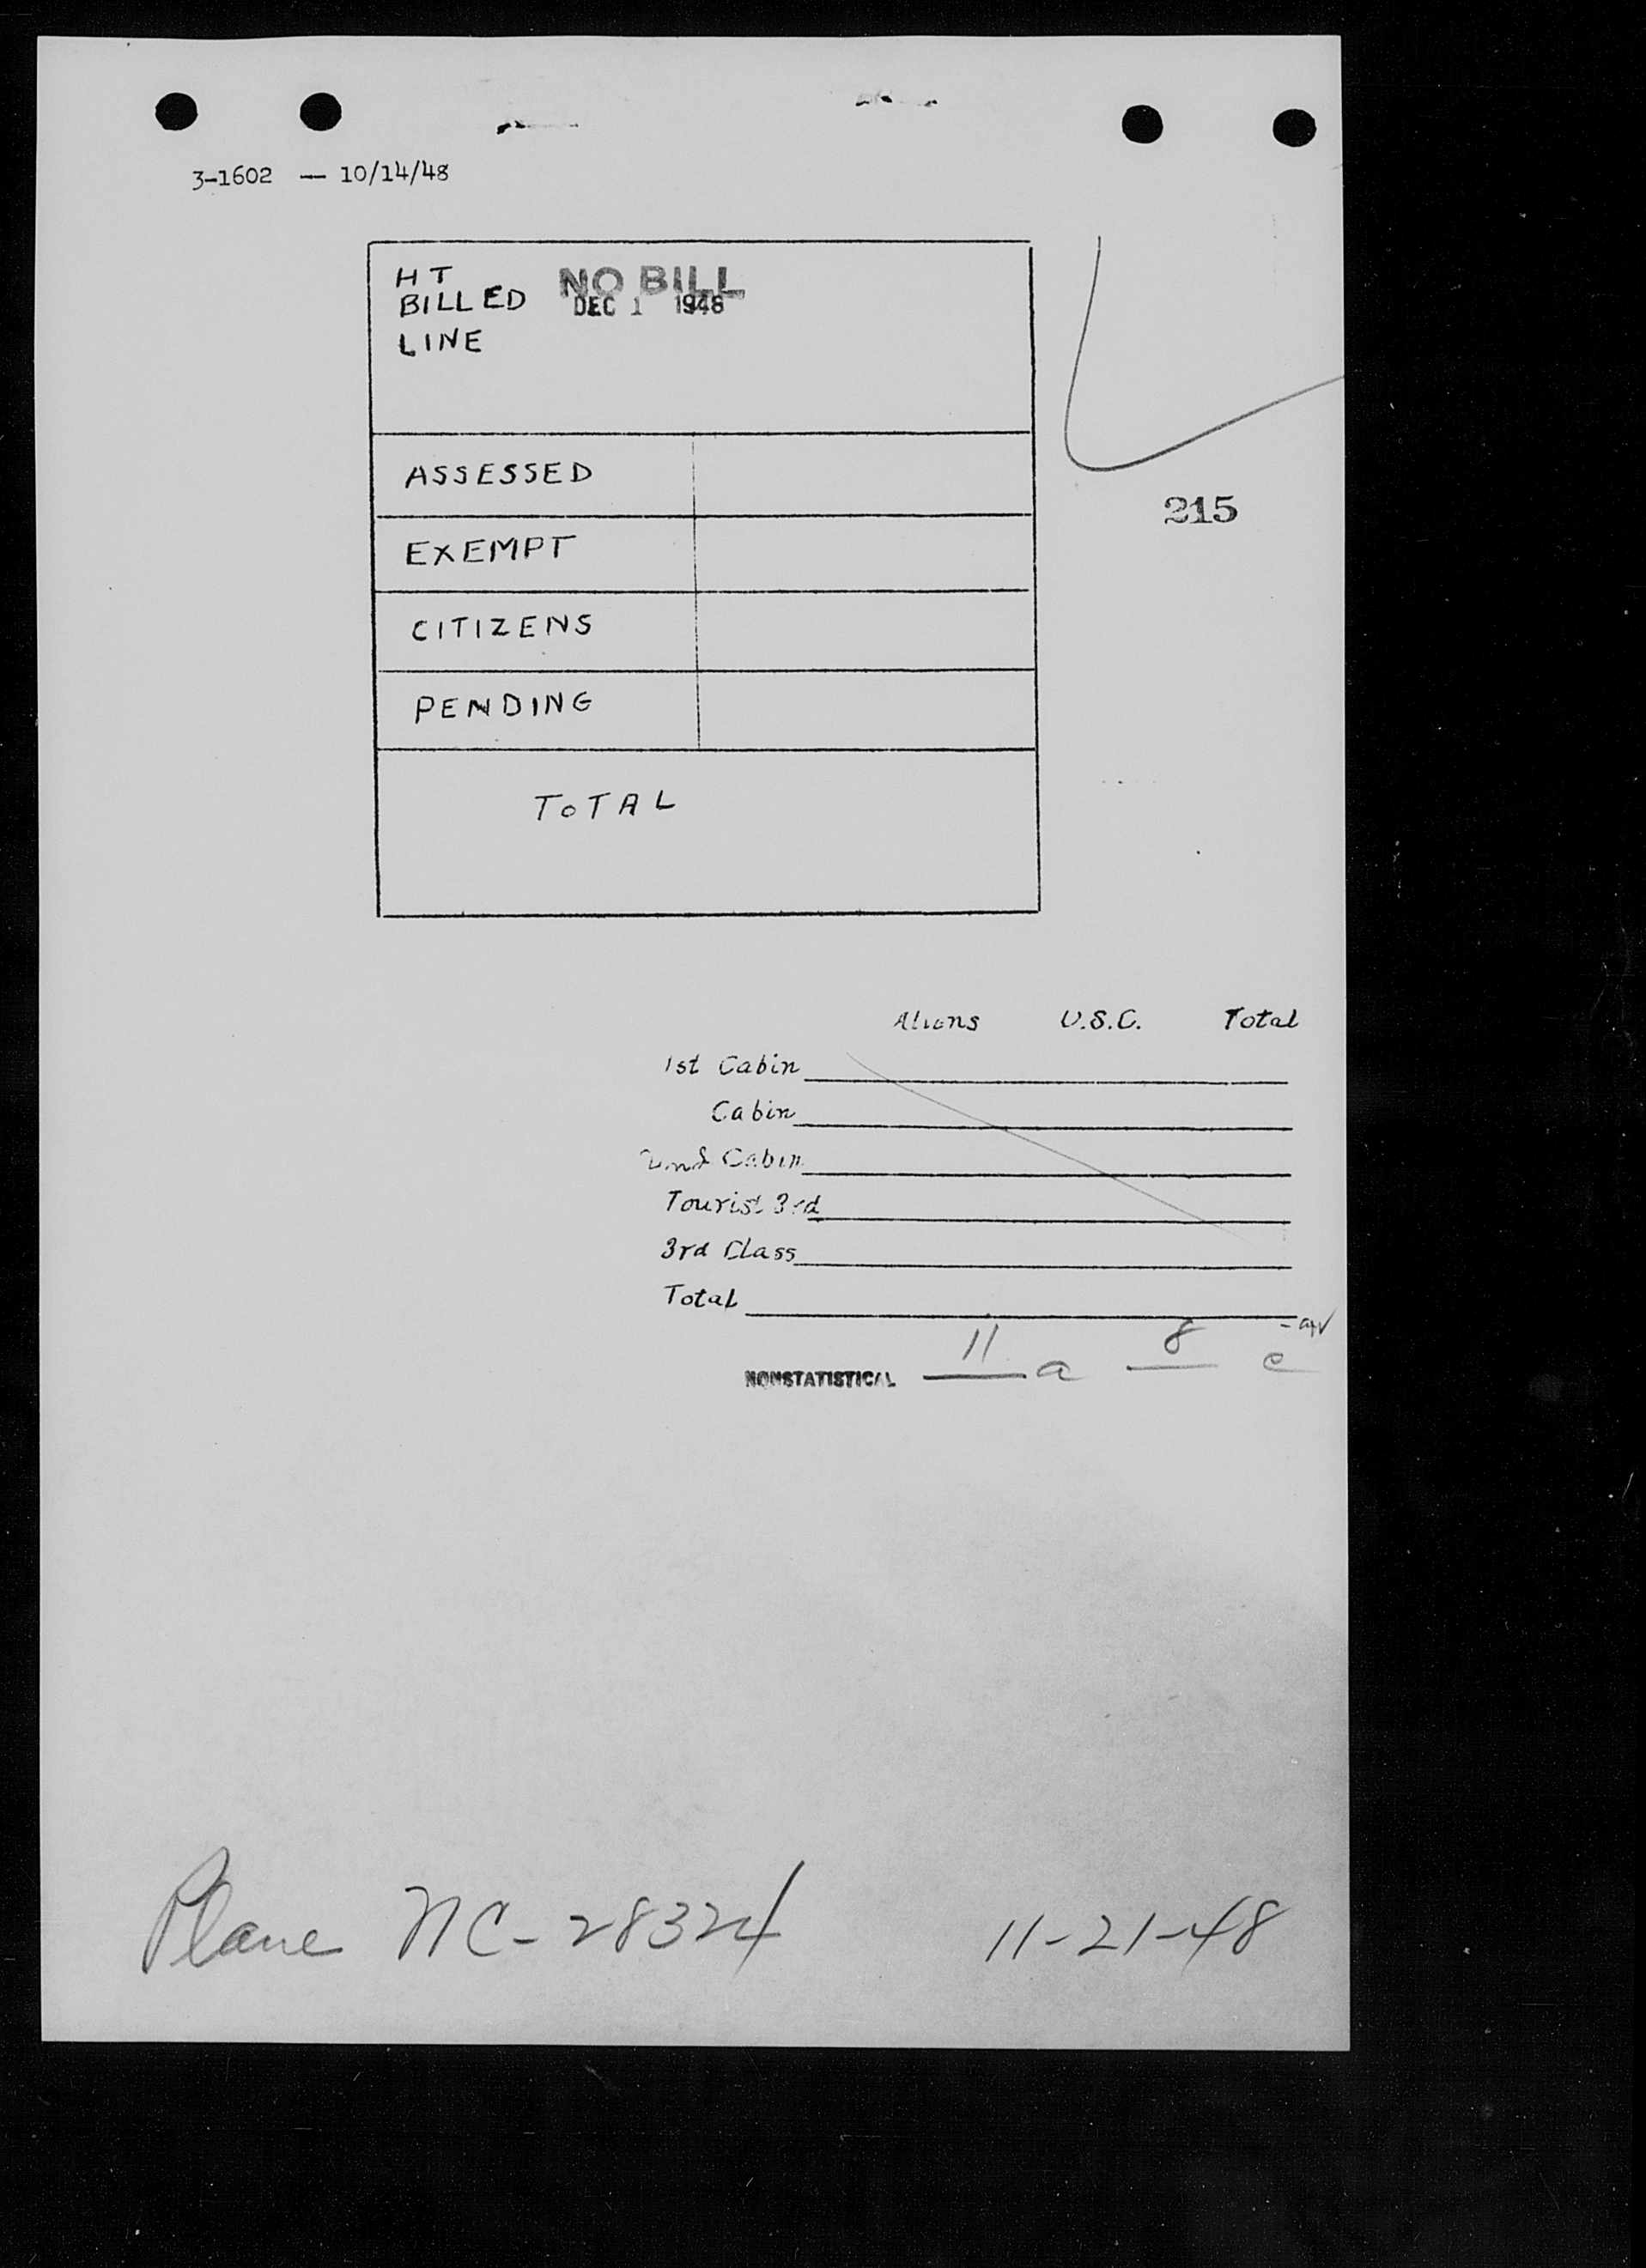 3-1602 — 10/14/48
HT
BILLED
LINE
NO BILL
DEC 1 1948
ASSESSED
EXEMPT
CITIZENS
PENDING
TOTAL
215
Aliens U.S.C. Total
1st Cabin
Cabin
2nd Cabin
Tourist 3rd
3rd Class
Total
NONSTATISTICAL 11 a 8 c
Plane NC-28324 11-21-48